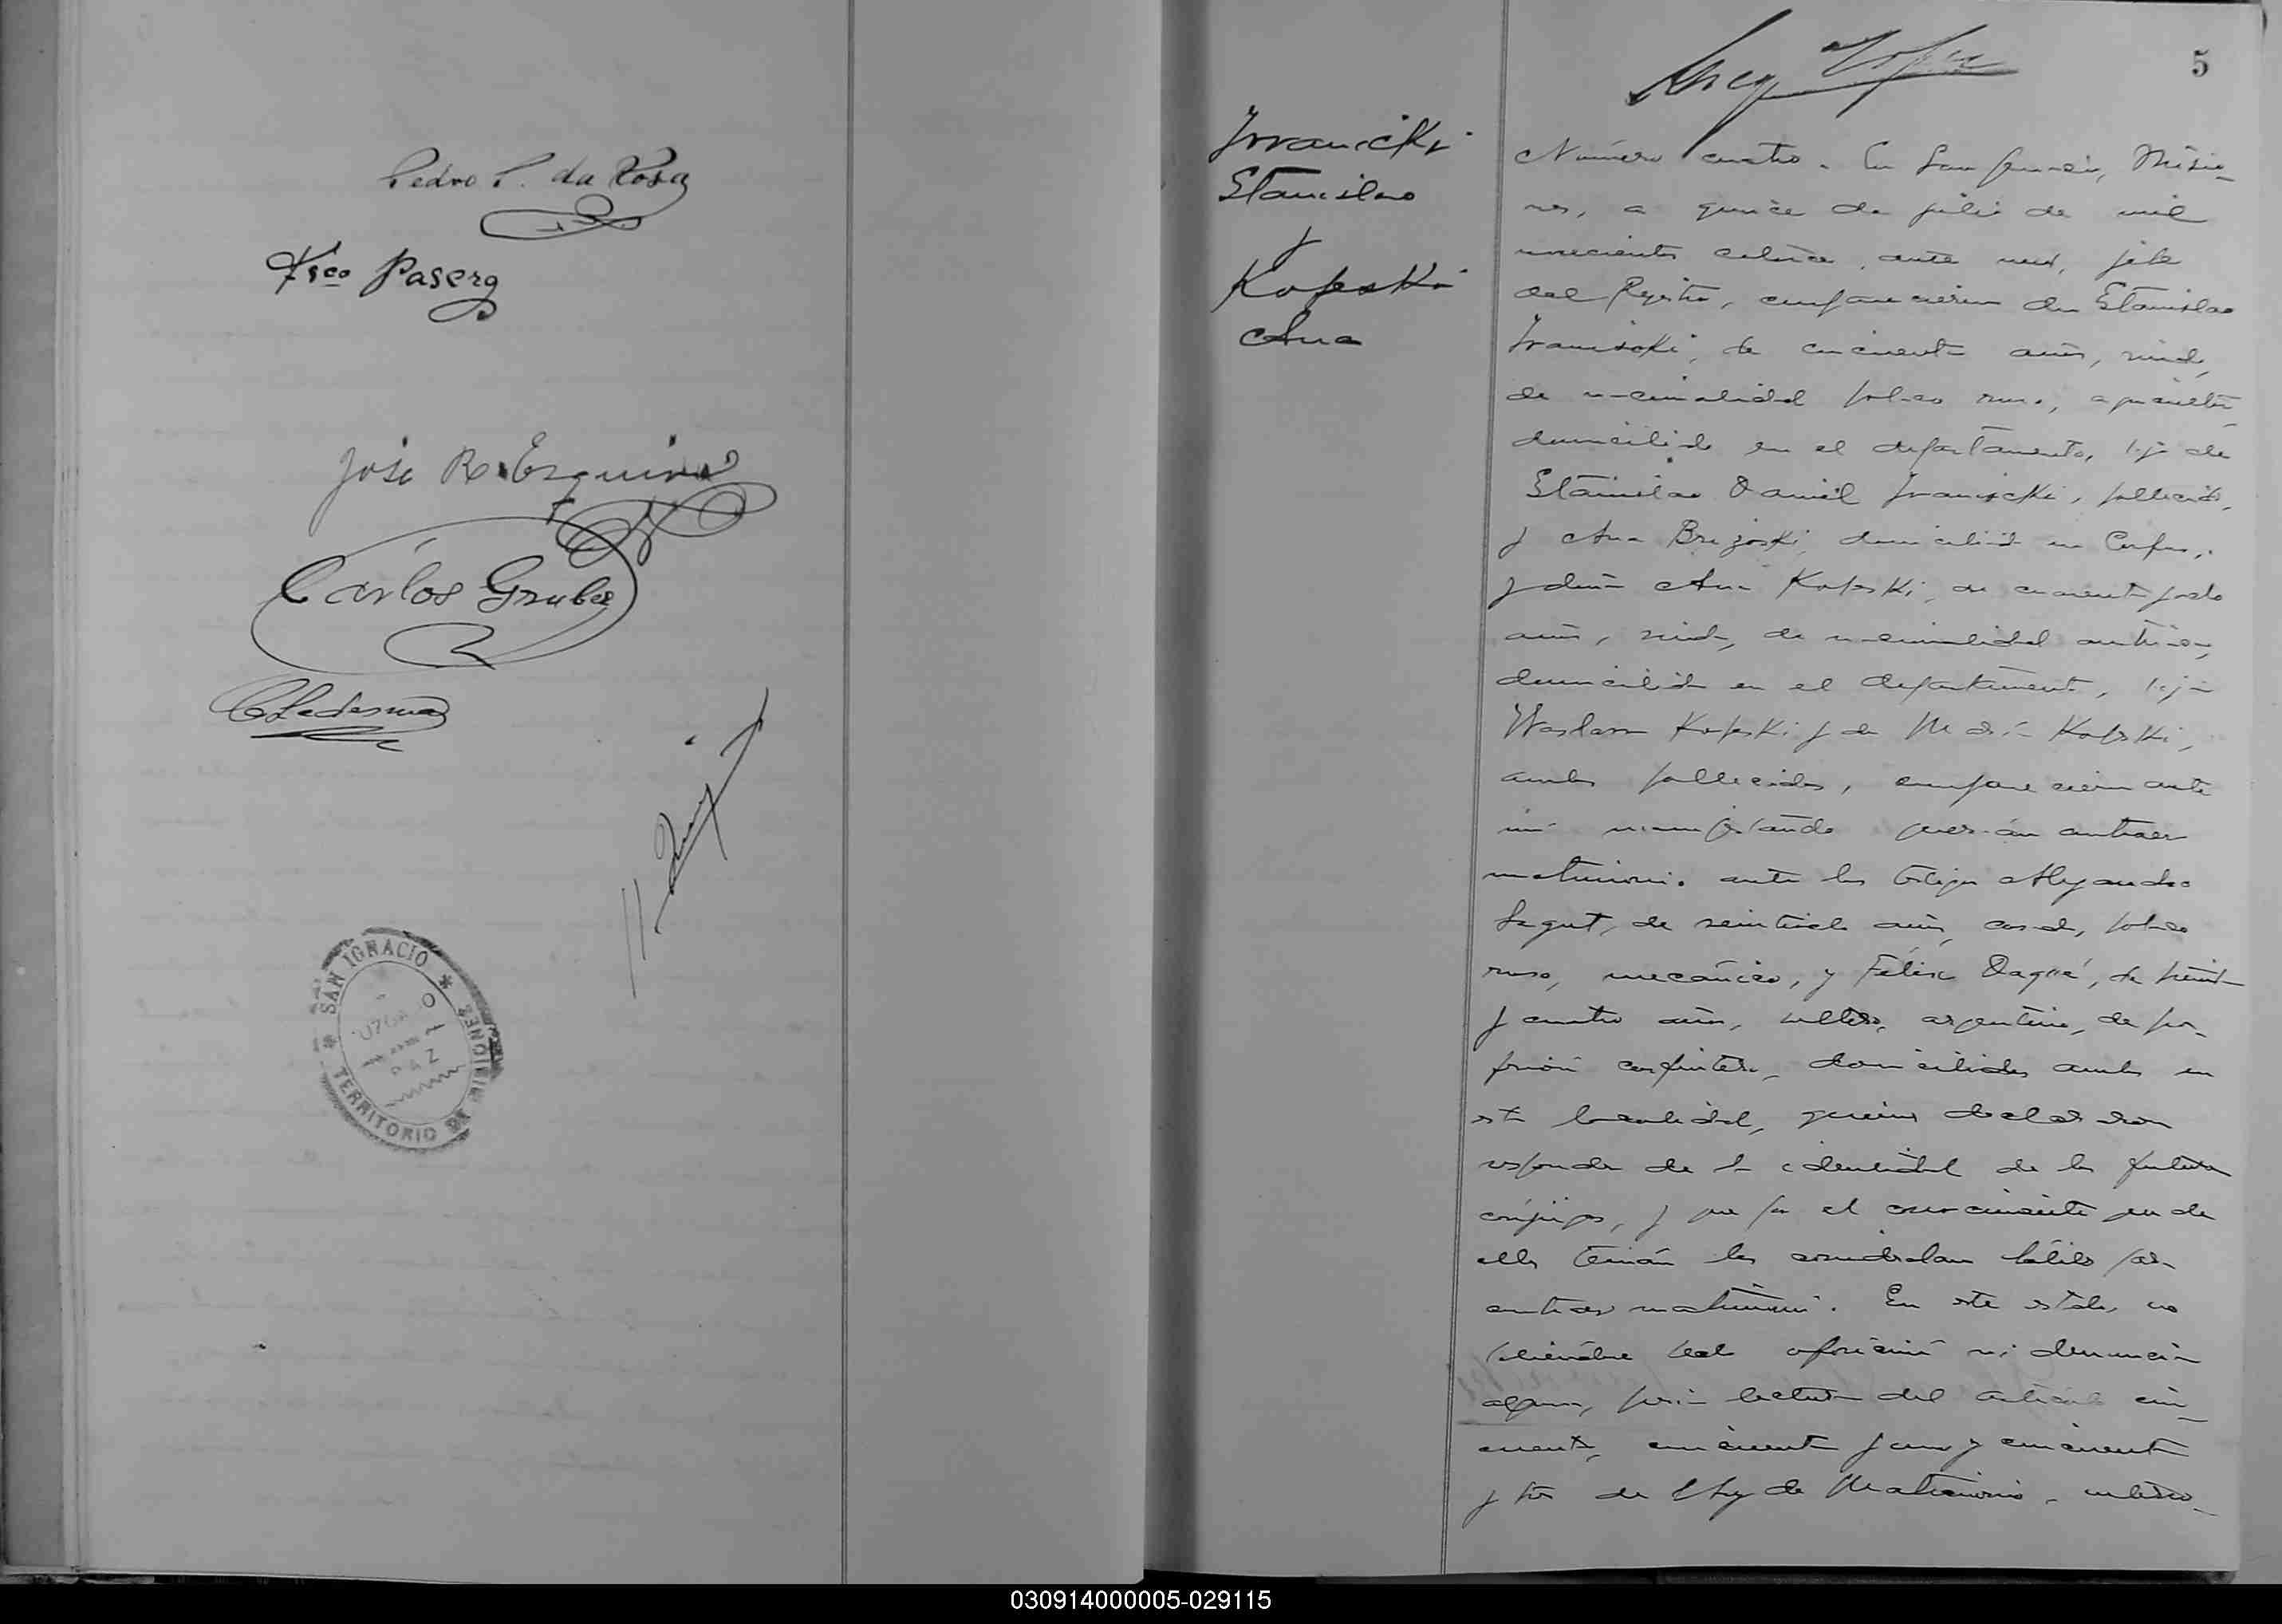 Pedro P. da Rosa
Fsco Pasera
José R. Esquivel
Carlos Gruber
CLedesma
SAN IGNACIO * TERRITORIO DE MISIONES *
JUZGADO
PAZ
5
Iwanicki
Estanislao
y
Kopeski
Ana
Número cuatro. En San Ignacio, Misio-
nes, a quince de julio de mil
novecientos catorce, ante mí, jefe
del Registro, comparecieron don Estanislao
Iwanicki, de cincuenta años, viudo,
de nacionalidad polaco ruso, agricultor
domiciliado en el departamento, hijo de
Estanislao Daniel Iwanicki, fallecido,
y Ana Brezoski, domiciliada en Corpus,
y doña Ana Kopeski, de cincuenta y ocho
años, viuda, de nacionalidad austriaca,
domiciliada en el departamento, hija
Waslaw Kopeski y de María Kopeski,
ambos fallecidos, comparecieron ante
mí manifestando querían contraer
matrimonio ante los testigos Alejandro
Sagut, de años, casado, polaco
ruso, mecánico, y Félix Dagué, de treinta
y cuatro años, soltero, argentino, de pro-
fesión carpintero, domiciliados ambos en
esta localidad, quienes declararon
responder de la identidad de los futuros
cónyuges, y que por el conocimiento que de
ellos tenían los consideraban hábiles para
contraer matrimonio. En este estado, no
habiéndose hecho oposición ni denuncia
alguna, lectura del artículo cin-
cuenta, cincuenta y uno y cincuenta
y tres de la Ley de Matrimonio,